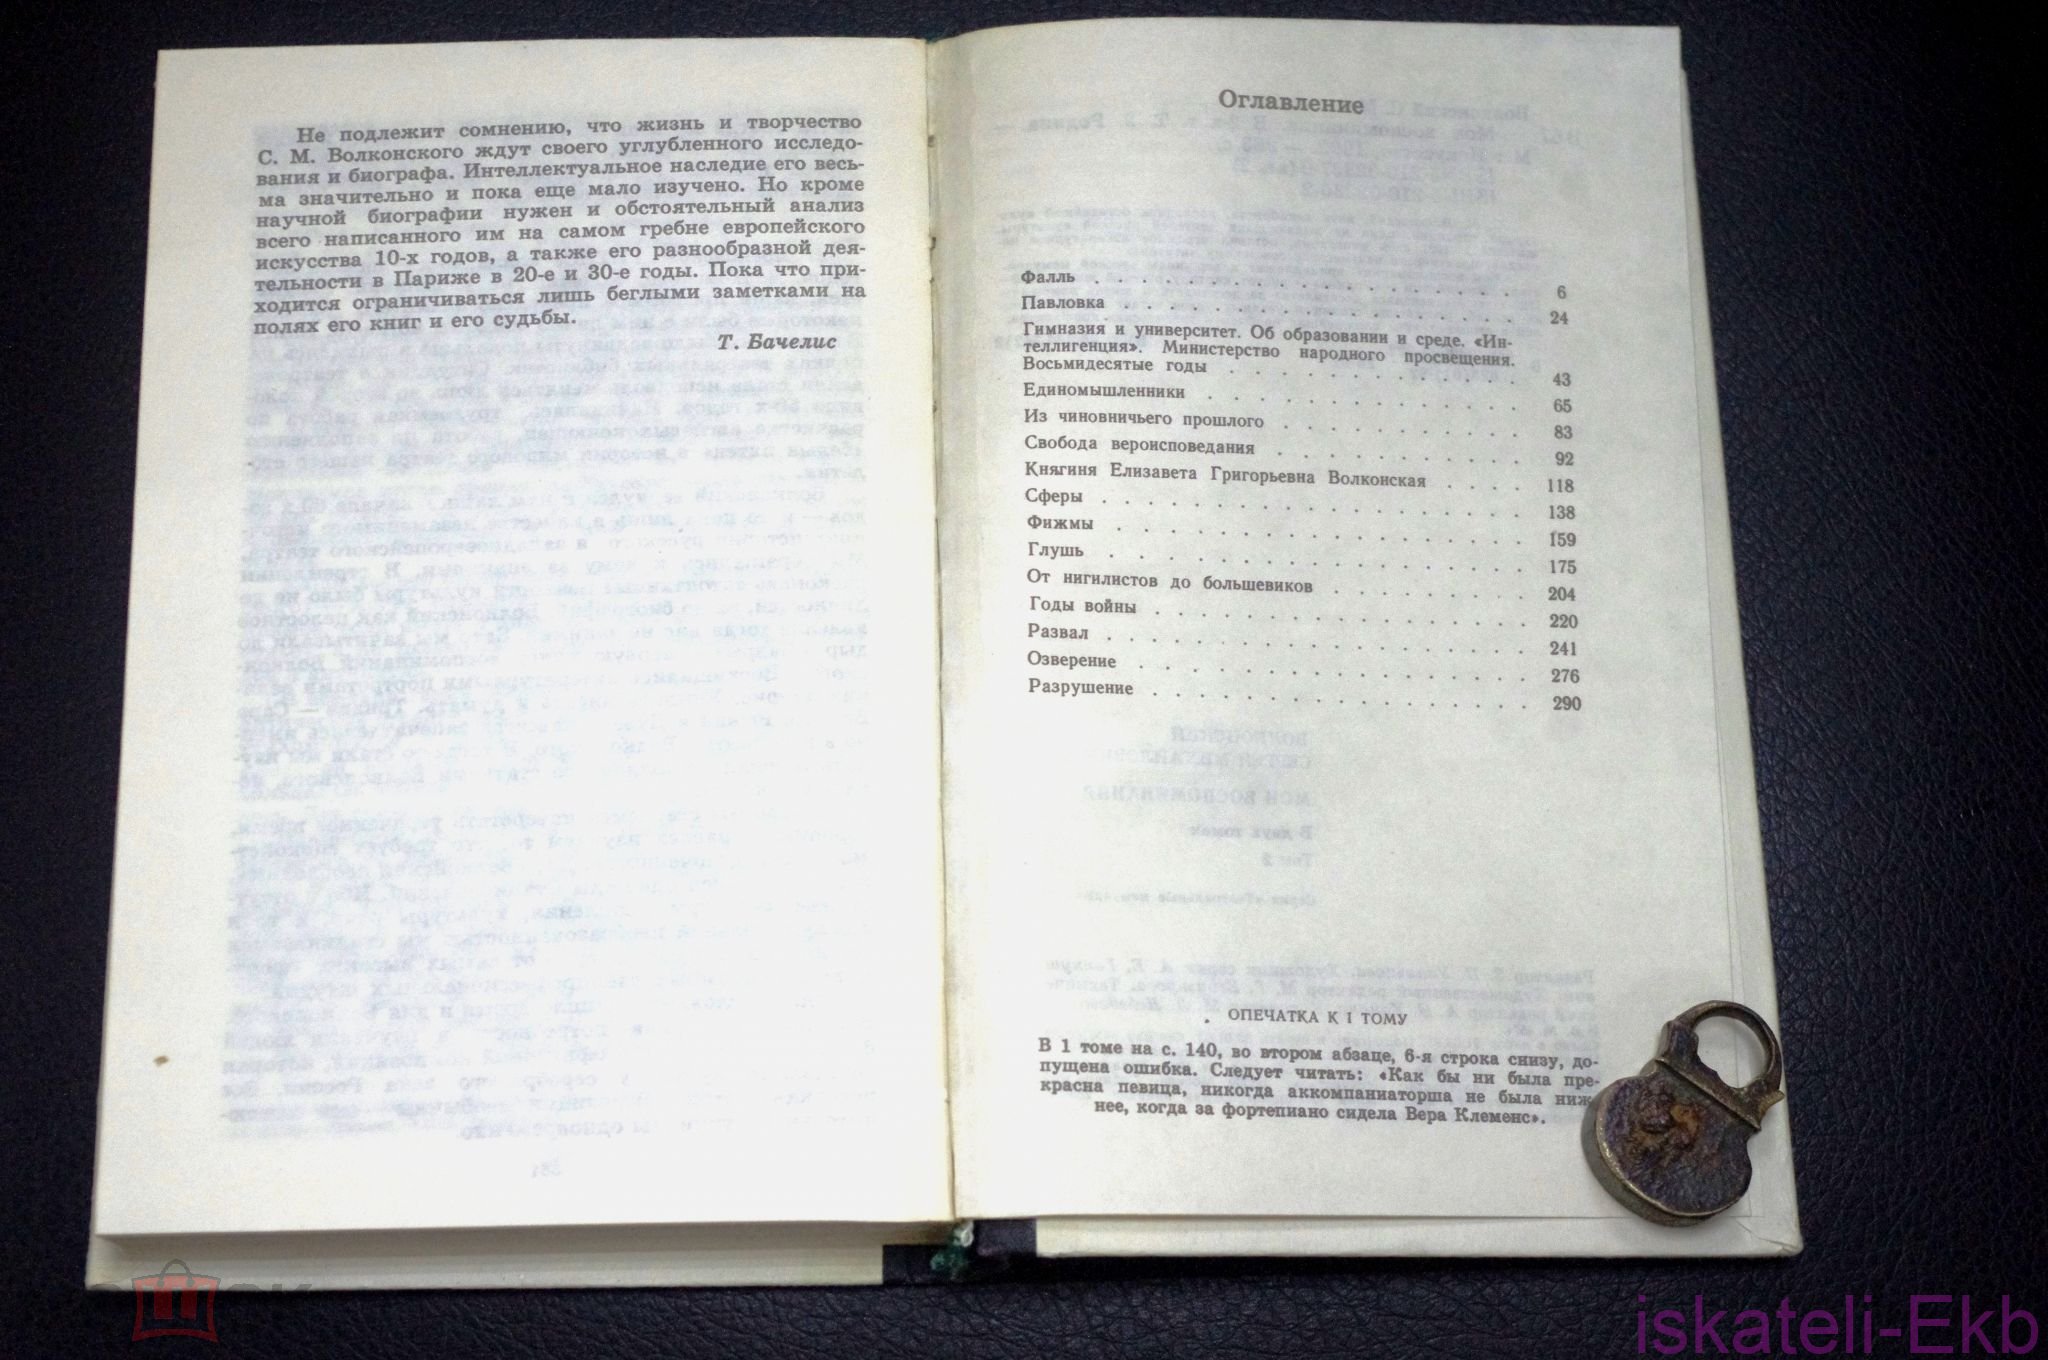 Не подлежит сомнению, что жизнь и творчество
С. М. Волконского ждут своего углубленного исследо-
вания и биографа. Интеллектуальное наследие его весь-
ма значительно и пока еще мало изучено. Но кроме
научной биографии нужен и обстоятельный анализ
всего написанного им на самом гребне европейского
искусства 10-х годов, а также его разнообразной дея-
тельности в Париже в 20-е и 30-е годы. Пока что при-
ходится ограничиваться лишь беглыми заметками на
полях его книг и его судьбы.
Т. Бачелис
Оглавление
Фалль . . . . . . . . . . . . . . . . . . 6
Павловка . . . . . . . . . . . . . . . . . 24
Гимназия и университет. Об образовании и среде. «Ин-
теллигенция». Министерство народного просвещения.
Восьмидесятые годы . . . . . . . . . . . . . 43
Единомышленники . . . . . . . . . . . . . . 65
Из чиновничьего прошлого . . . . . . . . . . . 83
Свобода вероисповедания . . . . . . . . . . . 92
Княгиня Елизавета Григорьевна Волконская . . . . 118
Сферы . . . . . . . . . . . . . . . . . . 138
Фижмы . . . . . . . . . . . . . . . . . . 159
Глушь . . . . . . . . . . . . . . . . . . 175
От нигилистов до большевиков . . . . . . . . . 204
Годы войны . . . . . . . . . . . . . . . . 220
Развал . . . . . . . . . . . . . . . . . . 241
Озверение . . . . . . . . . . . . . . . . . 276
Разрушение . . . . . . . . . . . . . . . . 290
ОПЕЧАТКА К I ТОМУ
В 1 томе на с. 140, во втором абзаце, 6-я строка снизу, до-
пущена ошибка. Следует читать: «Как бы ни была пре-
красна певица, никогда аккомпаниаторша не была ниж-
нее, когда за фортепиано сидела Вера Клеменс».
iskateli-Ekb